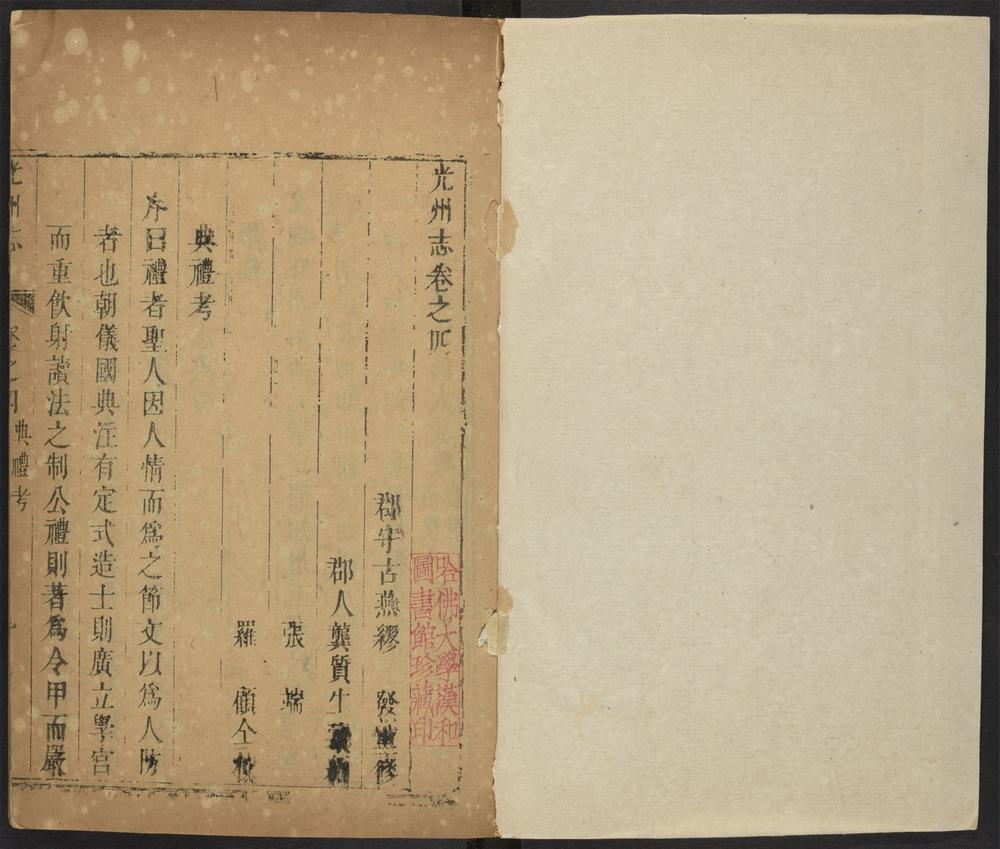 光州志卷之四
郡守古燕繆發重修
郡人龔質生
張端
羅傾仝校
典禮考
序曰禮者聖人因人情而爲之節文以爲人防
者也朝儀國典注有定式造士則廣立學宮
而重飲射讀法之制公禮則著爲令甲而嚴
光州志
卷之四
典禮考
哈佛大學漢和
圖書館珍藏印